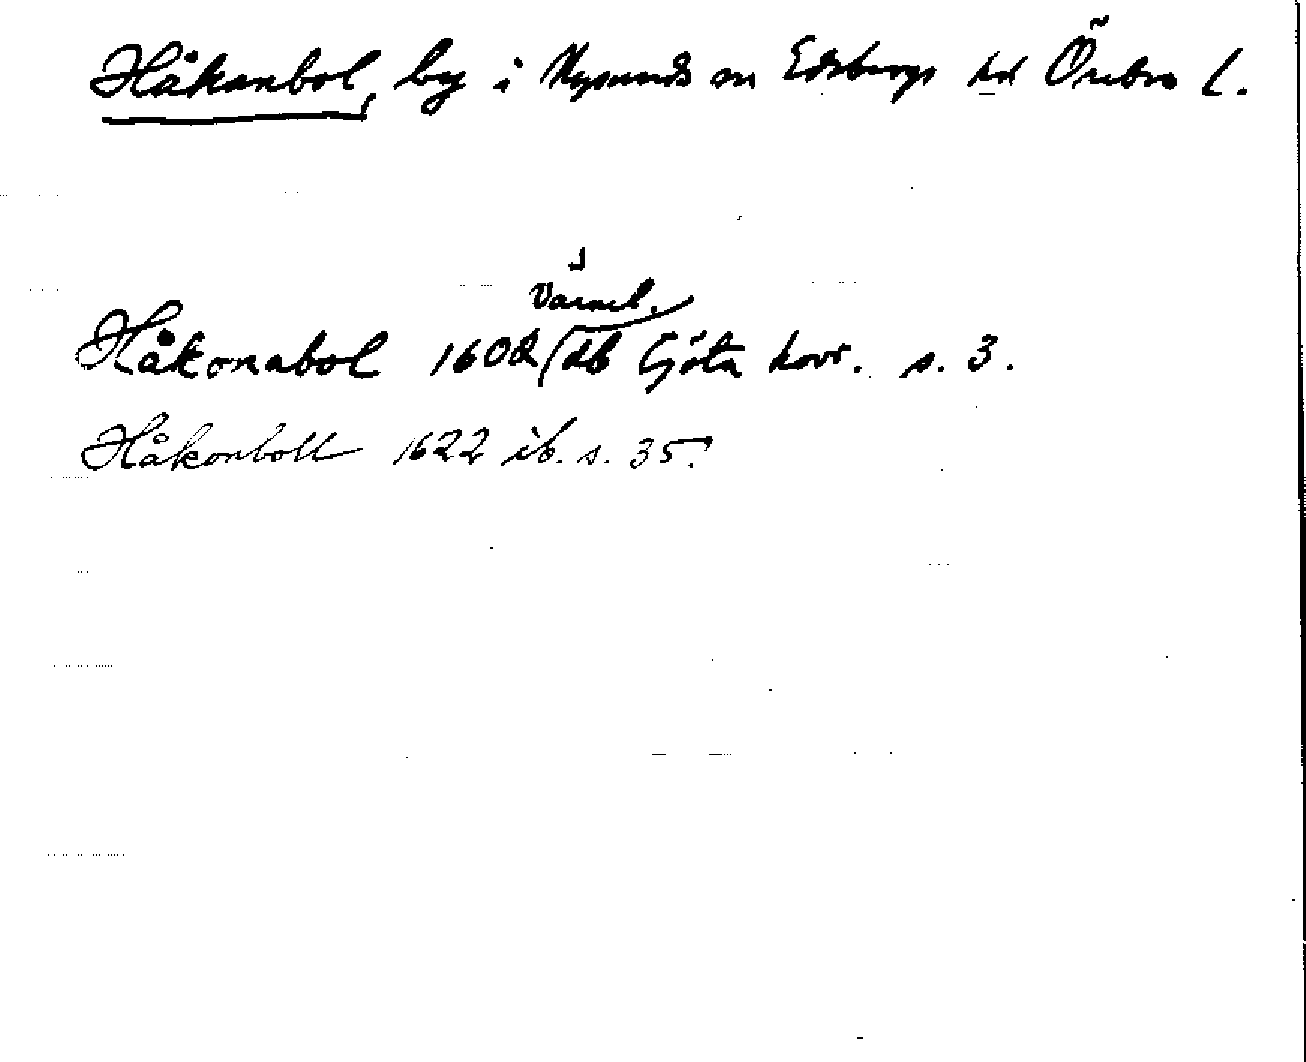 Håkanbol, by i Nysunds sn Edsbergs hd Örebro l.
Värml.
Håkonabol 1602 db Göta hovr. s. 3.
Håkonboll 1622 ib. s. 35.